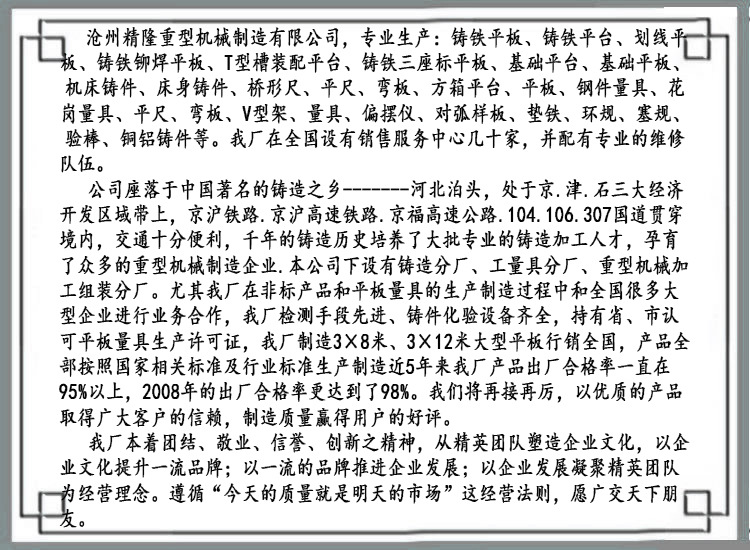 沧州精隆重型机械制造有限公司，专业生产：铸铁平板、铸铁平台、划线平
板、铸铁铆焊平板、T型槽装配平台、铸铁三座标平板、基础平台、基础平板、
机床铸件、床身铸件、桥形尺、平尺、弯板、方箱平台、平板、钢件量具、花
岗量具、平尺、弯板、V型架、量具、偏摆仪、对弧样板、垫铁、环规、塞规、
验棒、铜铝铸件等。我厂在全国设有销售服务中心几十家，并配有专业的维修
队伍。
公司座落于中国著名的铸造之乡-------河北泊头，处于京.津.石三大经济
开发区域带上，京沪铁路.京沪高速铁路.京福高速公路.104.106.307国道贯穿
境内，交通十分便利，千年的铸造历史培养了大批专业的铸造加工人才，孕育
了众多的重型机械制造企业.本公司下设有铸造分厂、工量具分厂、重型机械加
工组装分厂。尤其我厂在非标产品和平板量具的生产制造过程中和全国很多大
型企业进行业务合作，我厂检测手段先进、铸件化验设备齐全，持有省、市认
可平板量具生产许可证，我厂制造3×8米、3×12米大型平板行销全国，产品全
部按照国家相关标准及行业标准生产制造近5年来我厂产品出厂合格率一直在
95%以上，2008年的出厂合格率更达到了98%。我们将再接再厉，以优质的产品
取得广大客户的信赖，制造质量赢得用户的好评。
我厂本着团结、敬业、信誉、创新之精神，从精英团队塑造企业文化，以企
业文化提升一流品牌；以一流的品牌推进企业发展；以企业发展凝聚精英团队
为经营理念。遵循“今天的质量就是明天的市场”这经营法则，愿广交天下朋
友。